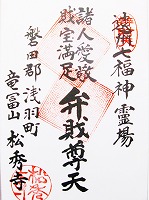 遠州七福神霊場
諸人愛敬
財宝満足
弁財尊天
磐田郡浅羽町
竜富山松秀寺